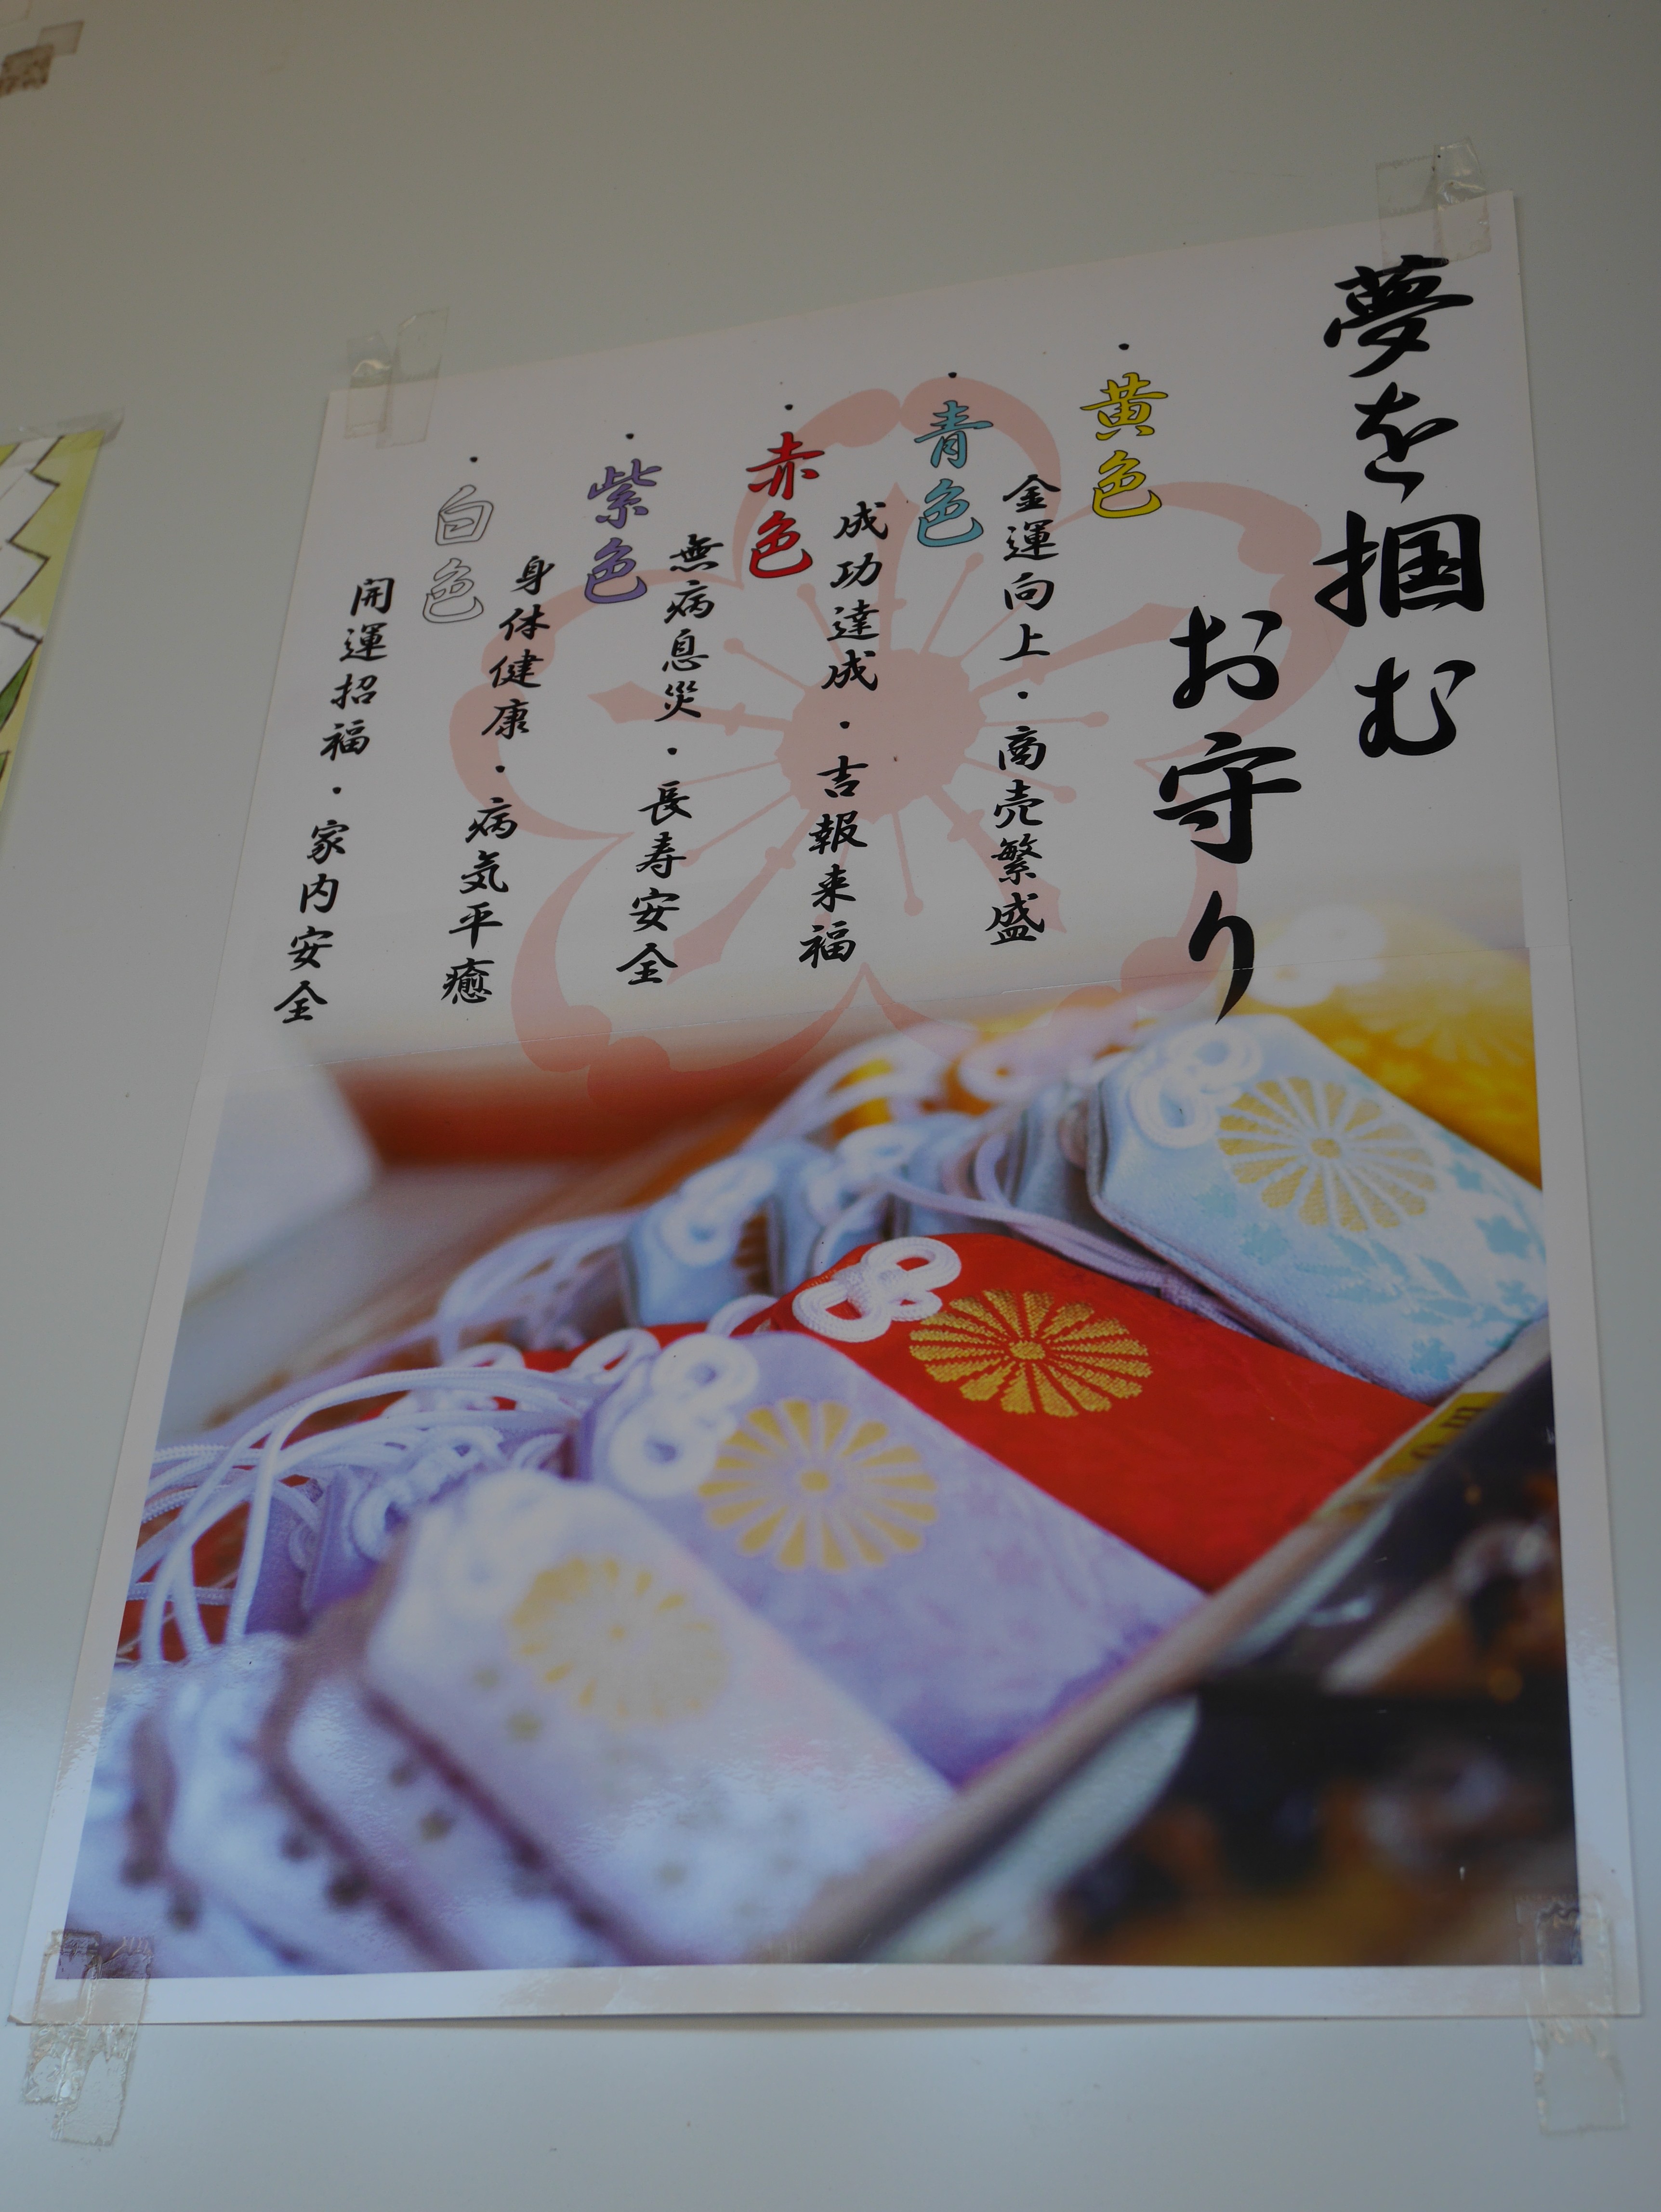 夢を掴む
お守り
・黄色
金運向上・商売繁盛
・青色
成功達成・吉報来福
・赤色
無病息災・長寿安全
・紫色
身体健康・病気平癒
・白色
開運招福・家内安全